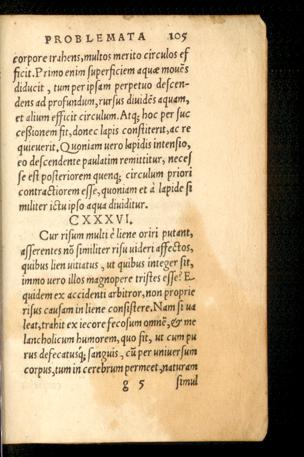 PROBLEMATA 105
corpore trahens, multos merito circulos ef
ficit. Primo enim superficiem aquæ mouẽs
diducit, tum per ipsam perpetuo descen-
dens ad profundum, rursus diuidẽs aquam,
et alium efficit circulum. Atq; hoc per suc
ceßionem fit, donec lapis constiterit, ac re
quieuerit. Quoniam vero lapidis intensio,
eo descendente paulatim remittitur, necef
se est posteriorem quenq; circulum priori
contractiorem esse, quoniam et à lapide si
militer ictu ipsa aqua diuiditur.
CXXXVI.
Cur risum multi è liene oriri putant,
asserentes nõ similiter risu videri affectos,
quibus lien uitiatus, ut quibus integer sit,
immo vero illos magnopere tristes esse? E-
quidem ex accidenti arbitror, non proprie
risus causam in liene consistere. Nam si ua
leat, trahit ex iecore fecosum omnẽ, & me
lancholicum humorem, quo fit, ut cum pu
rus defecatusq; sanguis, cũ per uniuersum
corpus, tum in cerebrum permeet, naturam
g 5 simul